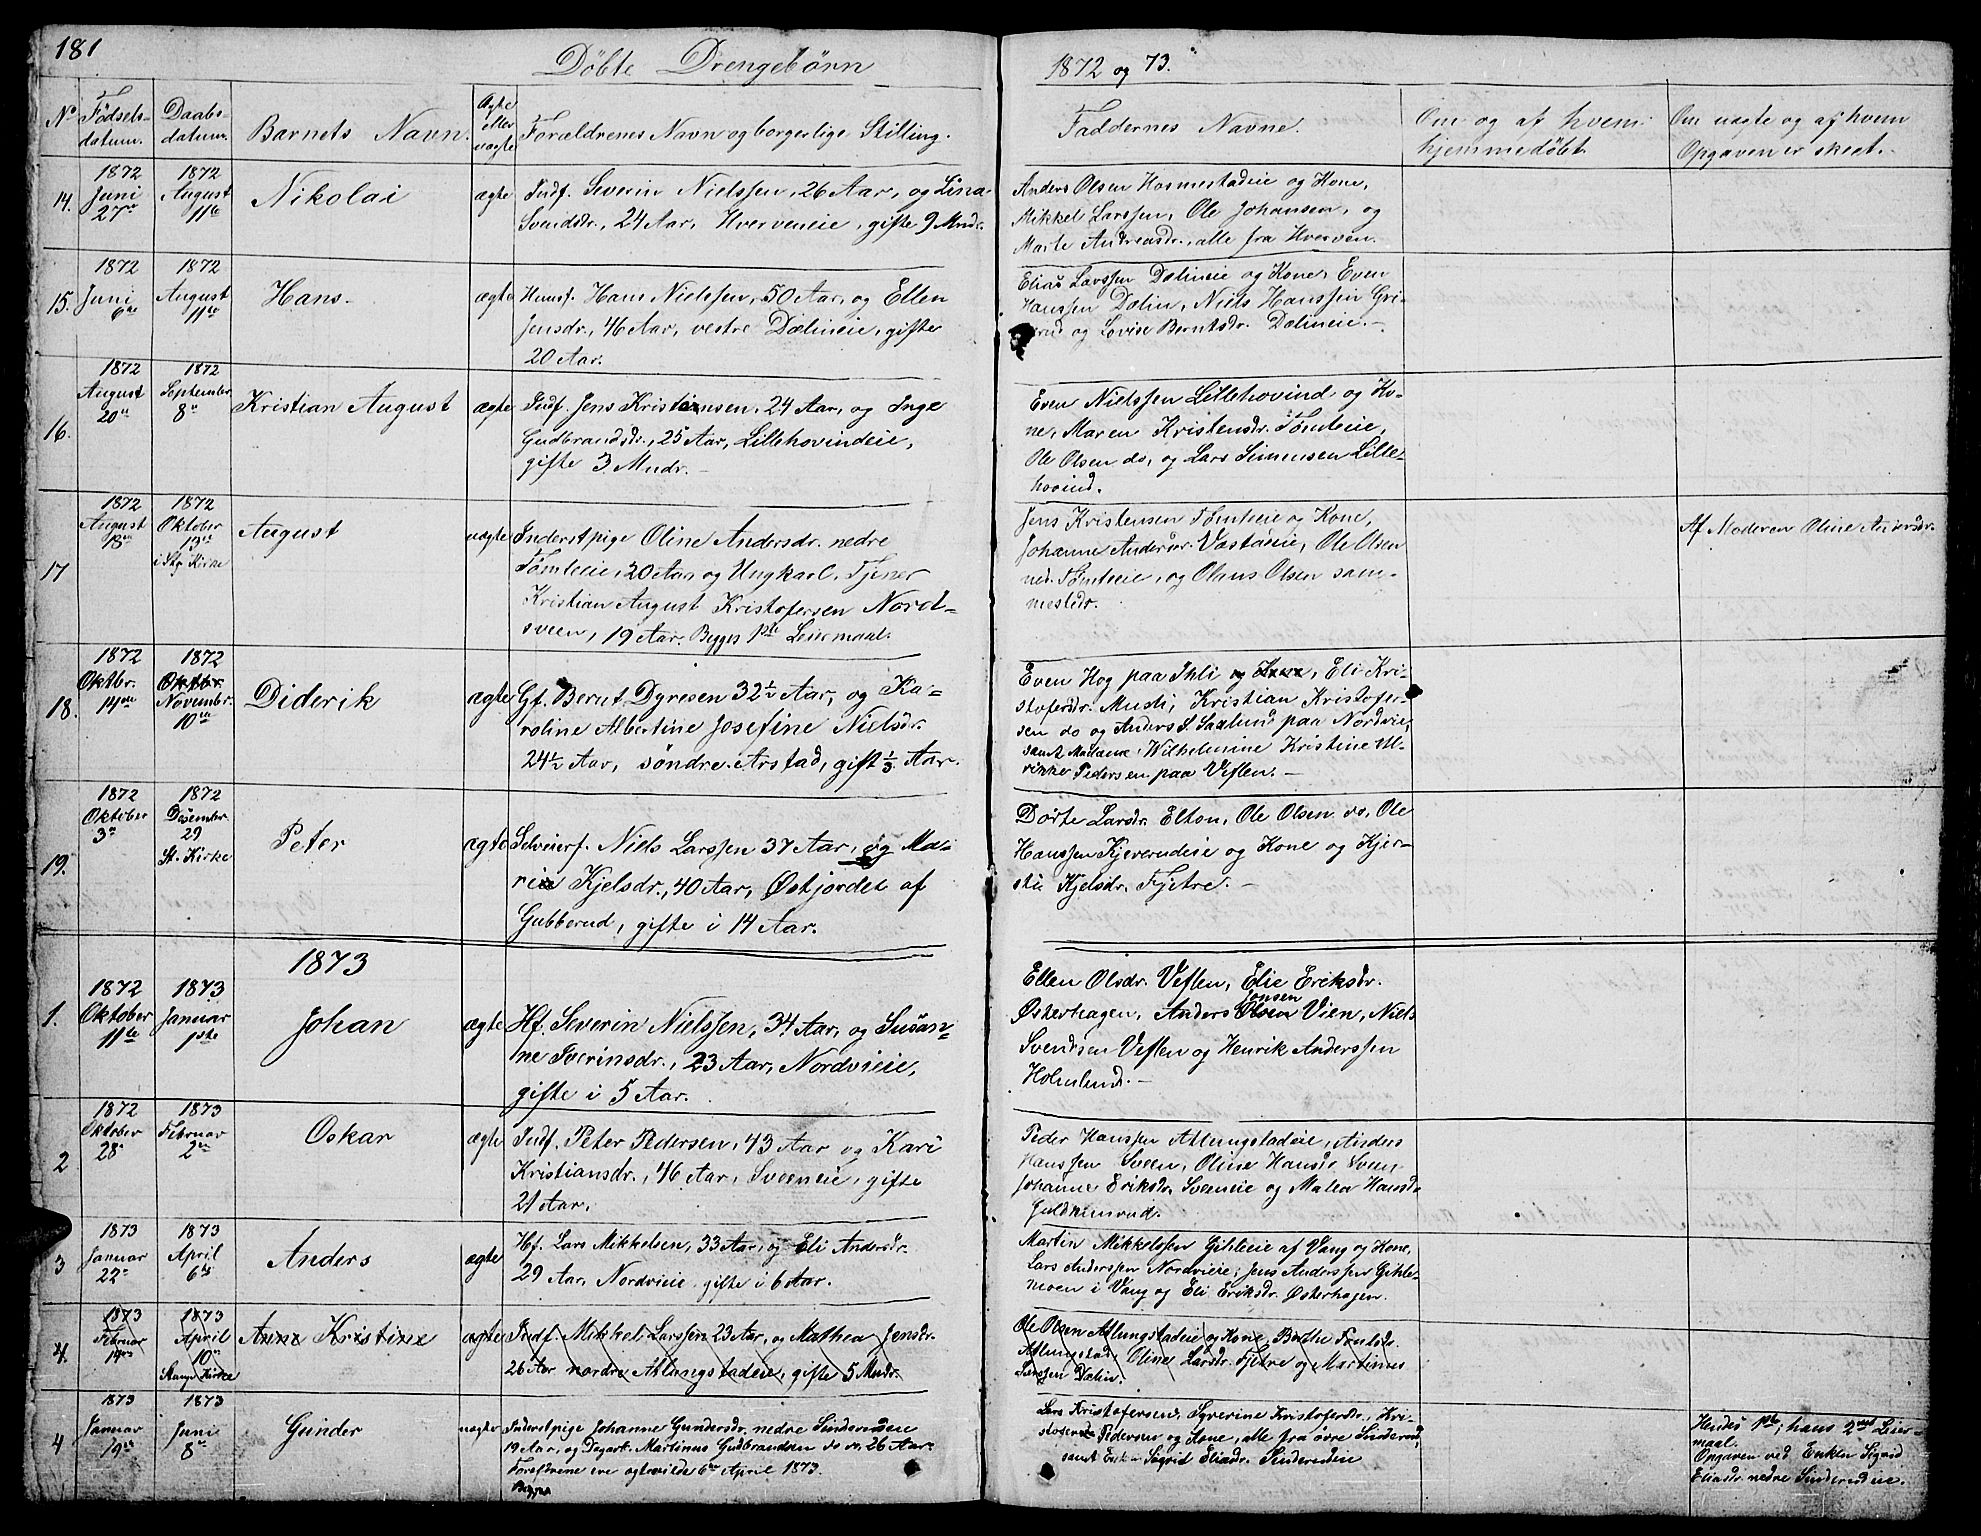 181
Döbte Drengebörn
1872 og 73.
No
Födsels-
datum.
Daabs-
datum.
Barnets Navn.
Ægte
eller
uægte
Forældrenes Navn og borgerlige Stilling.
Faddernes Navne.
Om og af hvem
hjemmedöbt
Om uægte og af hvem
Opgaven er skeet.
14.
1872
Juni
27de
1872
August
11te
Nikolai
ægte
Indf. Severin Nielssen, 26 Aar, og Lina
Svendsdr., 24 Aar, Hverveneie, gifte 9 Mndr.
Anders Olsen Hosmestadeie og Kone,
Mikkel Larssen, Ole Johansen, og
Marte Andreasdr., alle fra Hverven.
15.
1872
Juni
6te
1872
August
11te
Hans.
ægte
Huusf. Hans Nielssen, 50 Aar, og Ellen
Jensdr., 46 Aar, vestre Dælineie, gifte
20 Aar.
Elias Larssen Dælineie og Kone, Even
Hanssen Dælin, Niels Hanssen Gri-
og Lovise Berntsdr. Dælineie.-
16.
1872
August
20de
1872
September
8de
Kristian August
ægte
Indf. Jens Kristiansen, 24 Aar, og Inge
Gudbrandsdr., 25 Aar, Lillehovindeie,
gifte 3 Mndr.-
Even Nielssen Lillehovind, og Ko-
ne, Maren Kristensdr. Tömteeie,
Ole Olsen do, og Lars Simensen Lille-
hovind.
17
1872
August
18de
1872
Oktober
13de
i Stg Kirke
August
uægte
Inderstpige Oline Andersdr. nedre
Tömteeie, 20 Aar, og Ungkarl, Tjener
Kristian August Kristofersen Nord-
sveen, 19 Aar. Begges 1ste Leiermaal.
Jens Kristensen Tömteeie og Kone,
Johanne Andersdr. Ole Olsen
ned. Tömteeie, og Olaus Olsen sam-
mestedr.
Af Moderen Oline Andersdr.
18.
1872
Oktbr.
14de
1872
Oktbr.
Novembr.
10de
Diderik
ægte
Gf. Bernt Dyresen 32½ Aar, og Ka-
roline Albertine Josefine Nielsdr.
24½ Aar, söndre Arstad, gift ⅓ Aar.
Even Hog paa Ihli og Kone, Eli Kri-
stofersdr. Musli, Kristian Kristofer-
sen do og Anders S. Saxlund paa Nordvie,
samt Madame Wilhelmine Kristine Ul-
rikke Pedersen paa Veflen.-
19.
1872
Oktober
3de
1872
Desember
29
St. Kirke
Peter
ægte
Selveierf. Niels Larssen 37 Aar, og Ma-
rie Kjelsdr., 40 Aar, Östjordet af
Gubberud, gifte i 14 Aar.
Dorte Larsdr. Elton, Ole Olsen do, Ole
Hanssen Kjeverudeie og Kone og Kjer-
sti Kjelsdr. Fjetre.-
1873
1.
1872
Oktober
11te
1873
Januar
1ste
Johan
ægte
Hf. Severin Nielssen, 34 Aar, og Susan-
ne Iverinsdr., 23 Aar, Nordvieie,
gifte i 5 Aar.
Ellen Olsdr. Veflen, Elie Eriksdr.
Jonsen
Österhagen, Anders Olsen Vien, Niels
Svendsen Veflen og Henrik Anderssen
Holmlund.-
2
1872
Oktober
28de
1873
Februar
2den
Oskar
ægte
Indf. Peter Pedersen, 43 Aar og Kari
Kristiansdr., 46 Aar, Sveeneie, gifte
21 Aar.
Peder Hanssen Atlungstadeie, Anders
Hanssen Sveen, Oline Hansdr. Sveen
Johanne Eriksdr. Sveeneie og Malea Hansdr.
3
1873
Januar
22de
1873
April
6te
Anders
ægte
Hf. Lars Mikkelsen, 33 Aar, og Eli Andersdr.
29 Aar, Nordvieie, gifte i 6 Aar.
Martin Mikkelssen Gihleeie af Vang og Kone,
Lars Anderssen Nordvieie, Jens Anderssen Gihle-
moen i Vang og Eli Eriksdr. Österhagen.
4.
1873
Februar
14de
1873
April
10de
Stange Kirke
Anne Kristine
ægte
Indf. Mikkel Larssen 23 Aar, og Mathea Jensdr.
26 Aar nordre Atlungstadeie, gifte 5 Mndr.
Ole Olsen Atlungstadeie og Kone, Berthe
Atlungstad, Oline Larsdr. Fjetre og Martinus
Larssen Dælin.
4
1873
Januar
19de
1873
Juni
8de
Gunder
uægte
Inderstpige Johanne Gundersdr. nedre Sinderudeie
19 Aar, og Dagarb. Martinus Gudbrandsen do do, 26 Aar.
Forældrene ere ogteviede 6te April 1873.
Begges
Lars Kristofersen, Syverine Kristofersdr., Kri-
stofer Pedersen og Kone, alle fra övre Sinderud,
samt Enke Sigrid Eliasdr. Sinderudeie
Hendes 1ste, hans 2det Leier-
maal.
Opgaven ved Enken Sigrid
Eliasdr. nedre Sinderudeie.